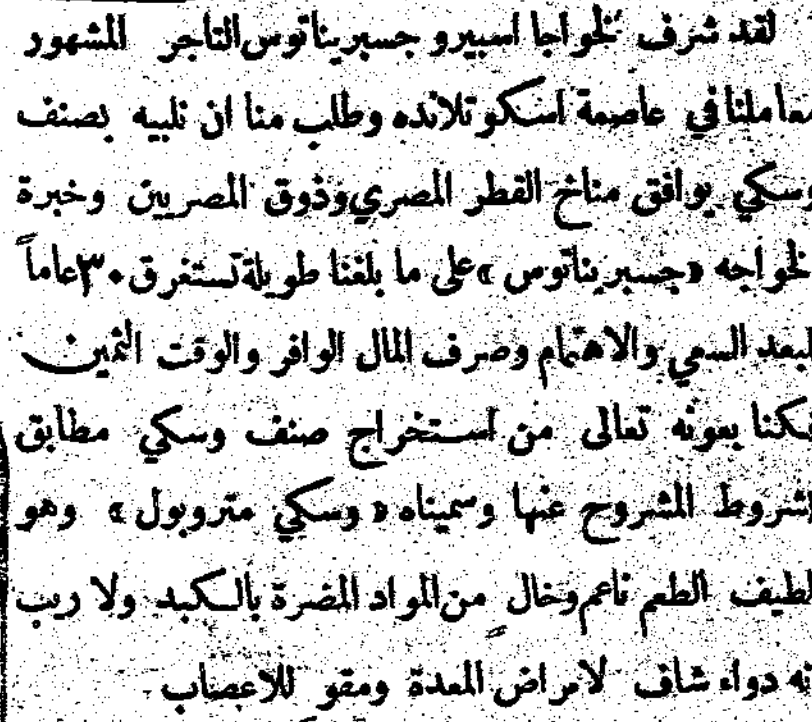 لقد شرف لخواجا اسبيرو جسبريناتوس التاجر المشهور
معاملنا في عاصمة اسكوتلانده وطلب منا ان نلبيه بصنف
وسكي يوافق مناخ القطر المصري وذوق المصريين وخبرة
لخواجه «جسبريناتوس» على ما بلغنا طويلة تستغرق ٣٠ عاماً
لبعد السعي والاهتمام وصرف المال الوافر والوقت الثمين
تمكنا بعونه تعالى من استخراج صنف وسكي مطابق
لشروط المشروح عنها وسميناه «وسكي متروبول» وهو
لطيف الطعم ناعم وخال من المواد المضرة بالكبد ولا ريب
نه دواء شاف لامراض المعدة ومقو للاعصاب